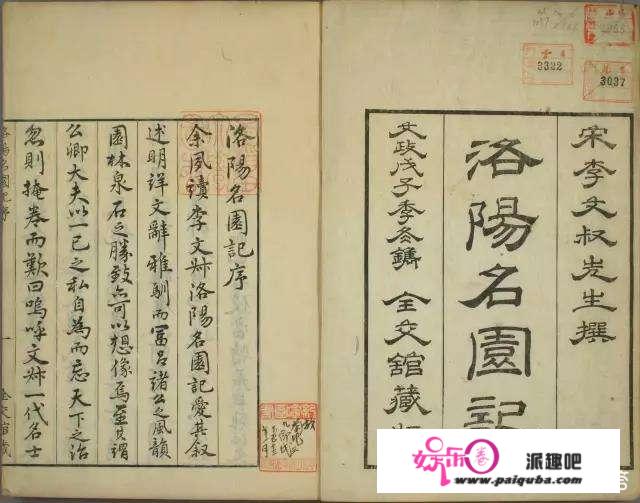 3322
3037
宋李文叔先生撰
洛陽名園記
文政戊子季冬鐫 全交舘藏
洛陽名園記序
余夙讀李文叔洛陽名園記愛其叙
述明詳文辭雅馴而冨呂諸公之風韻
園林泉石之勝致亦可以想像焉至其謂
公卿大夫以一己之私自為而忘天下之治
忽則掩卷而歎曰嗚呼文叔一代名士
娱乐圈
派趣吧
www.paiquba.com